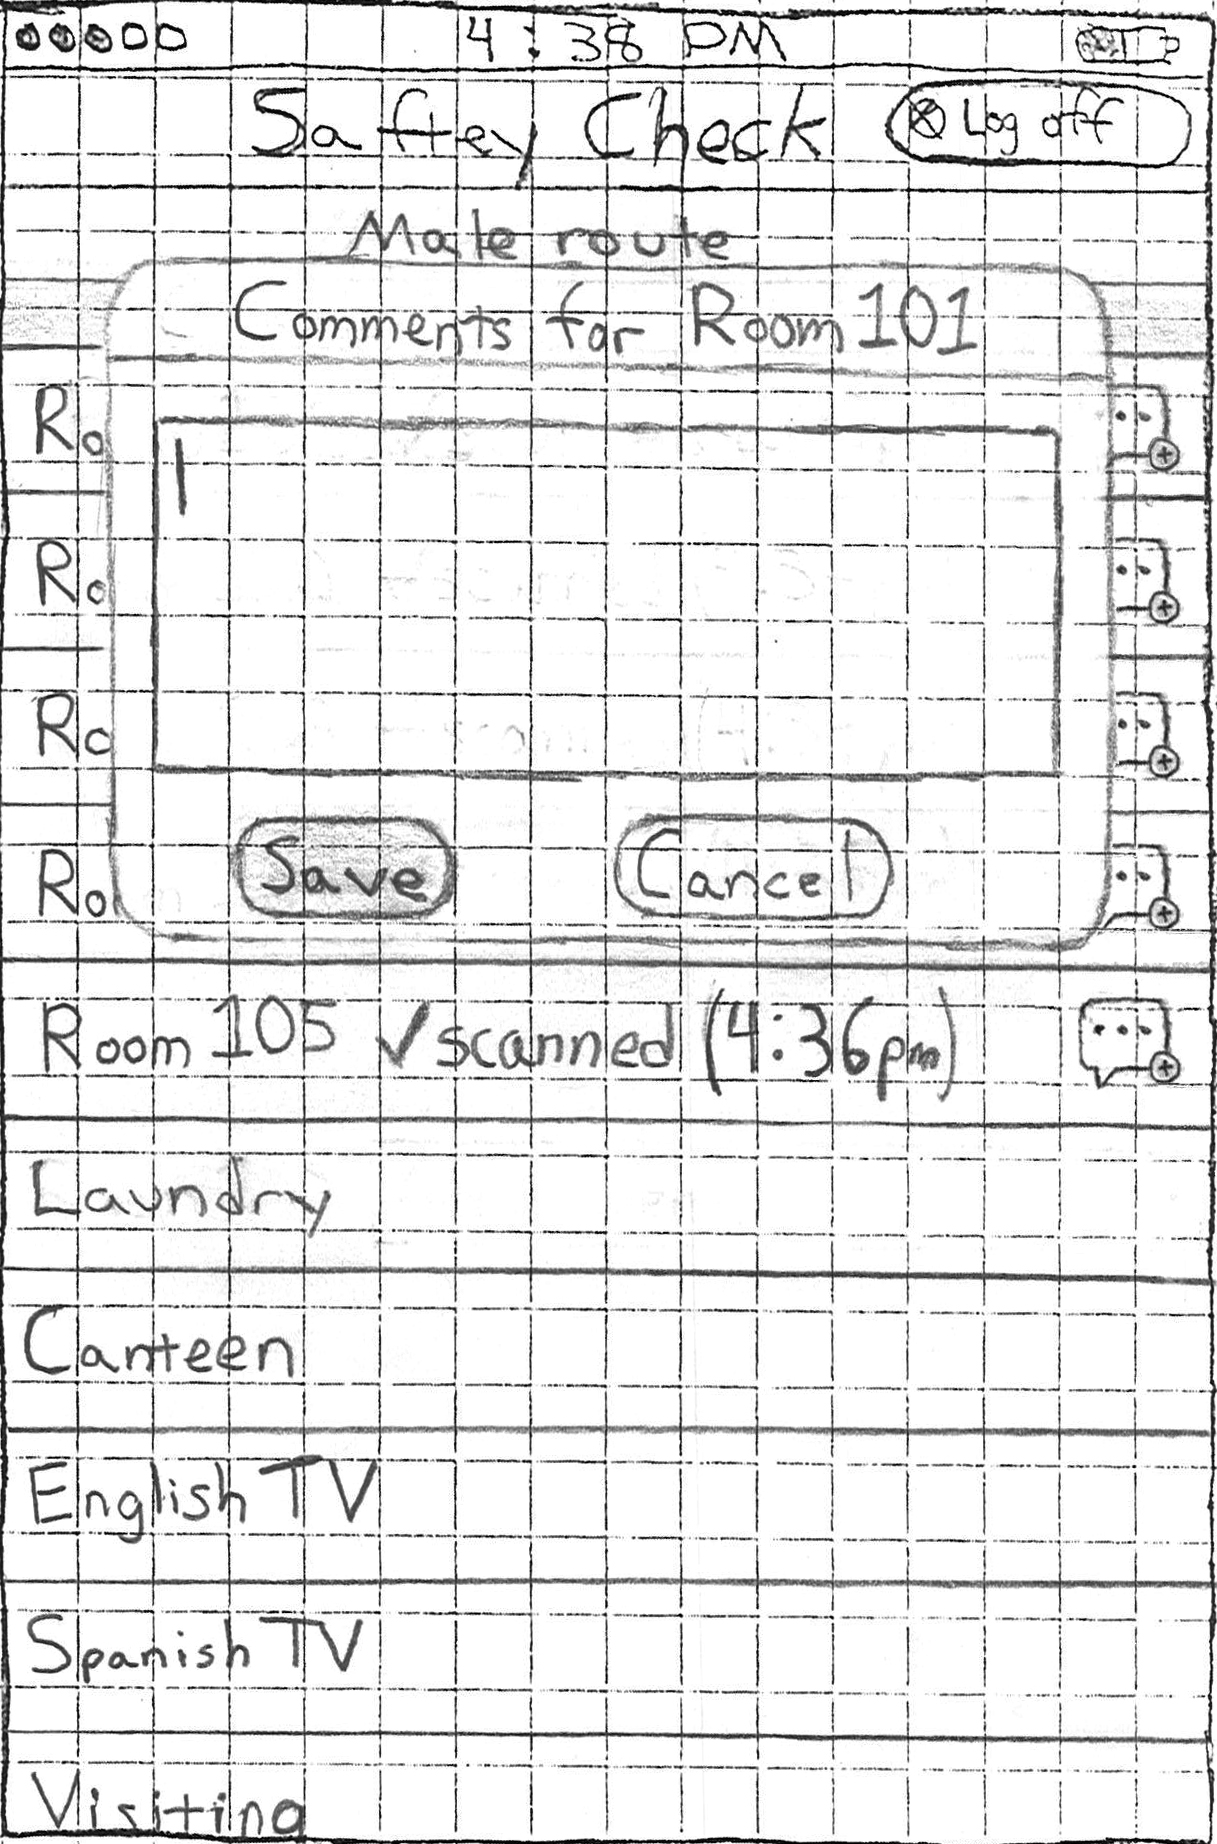 4:38 PM
Saftey Check
Log off
Male route
Comments for Room 101
Ro
Ro
Ro
Ro
Save
Cancel
Room 105 ✓scanned (4:36pm)
Laundry
Canteen
English TV
Spanish TV
Visiting